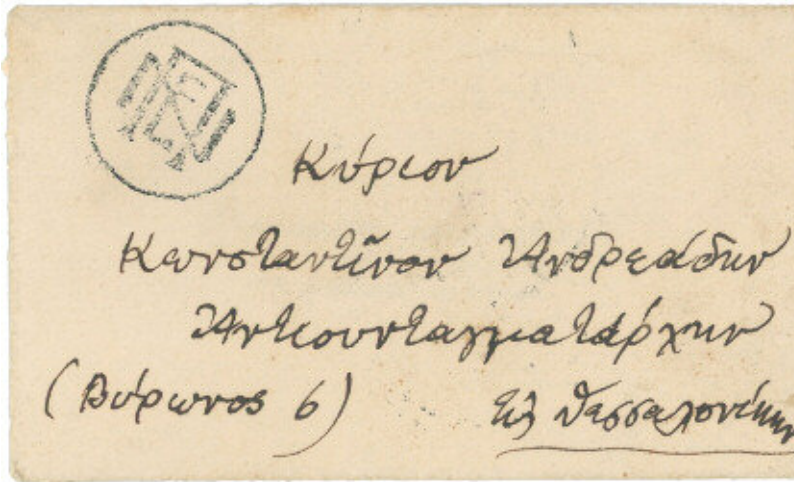 Κύριον
Κωνσταντῖνον Ἀνδρεάδην
Ἀντισυνταγματάρχην
(Βύρωνος 6) Εἰς Θεσσαλονίκην